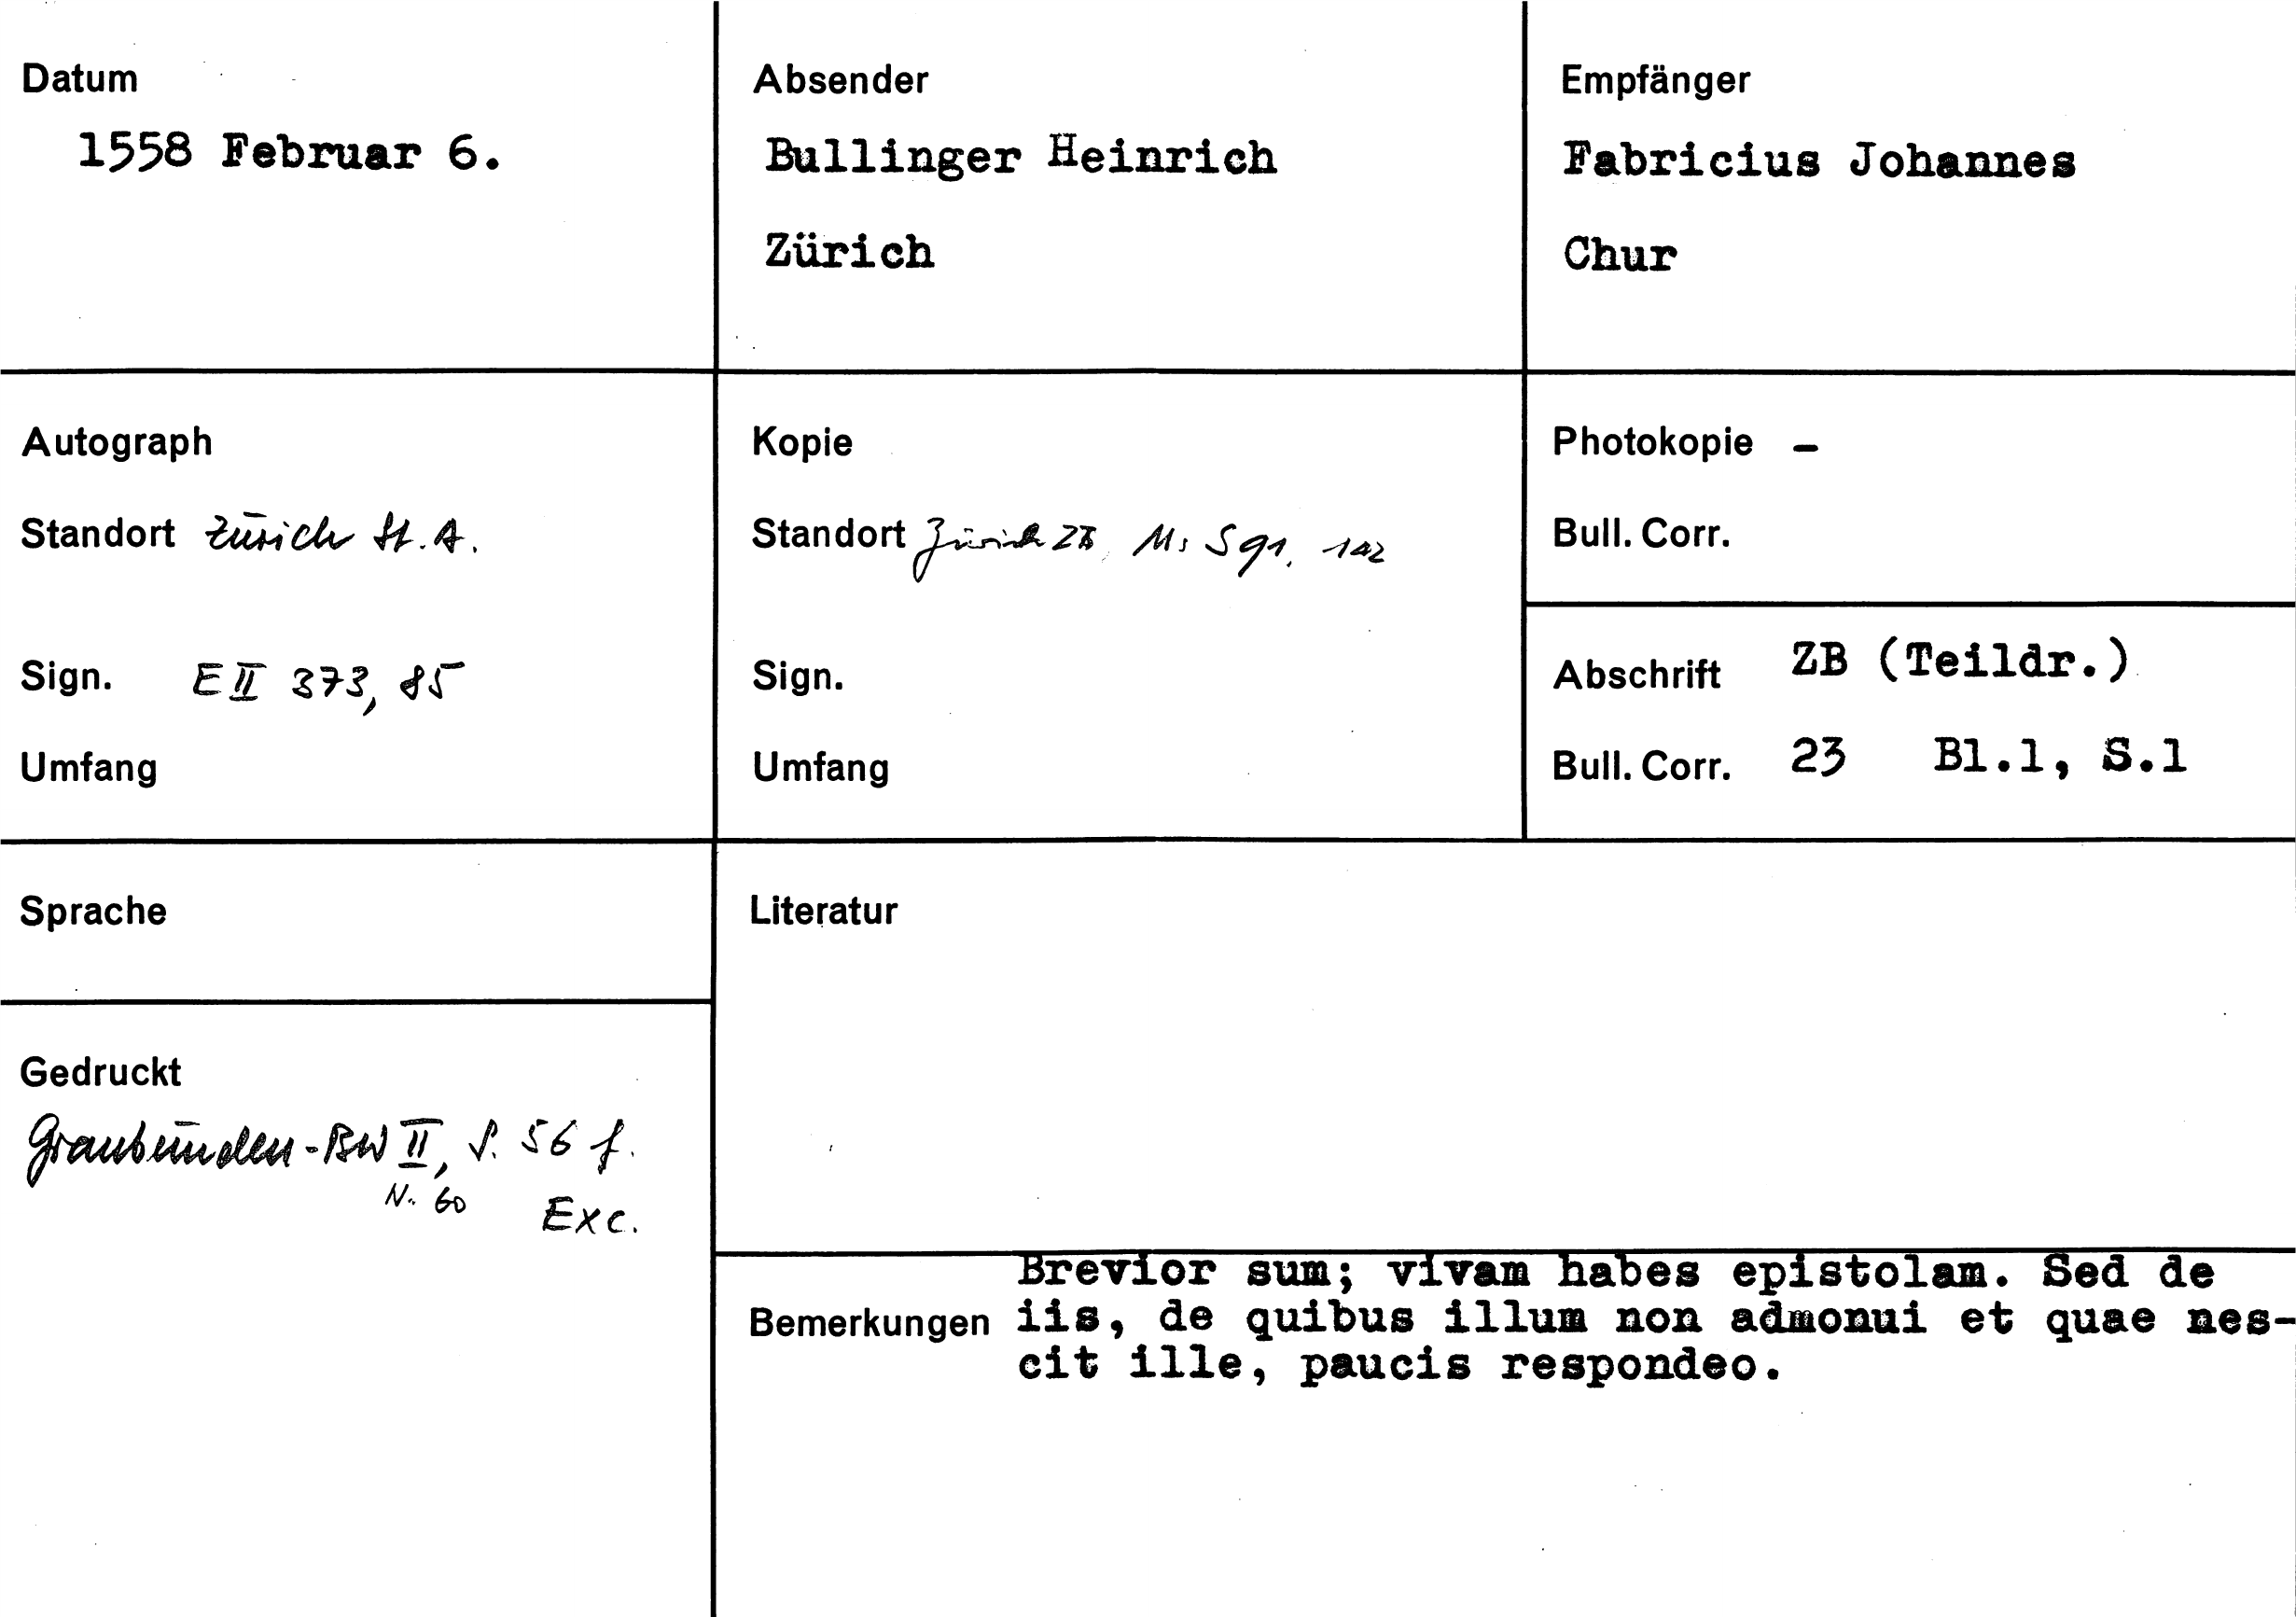 Datum
1558 Februar 6.
Absender
Bullinger Heinrich
Zürich
Empfänger
Fabricius Johannes
Chur
Autograph
Standort Zürich St.A.
Sign. E II 373, 85
Umfang
Kopie
Standort Zürich ZB, Ms S 91, 142
Sign.
Umfang
Photokopie -
Bull. Corr.
Abschrift ZB (Teildr.)
Bull. Corr. 23 Bl.1, S.1
Sprache
Literatur
Gedruckt
Graubünden-BW II, S. 56 f.
N. 60 Exc.
Brevior sum; vivam habes epistolam. Sed de
Bemerkungen iis, de quibus illum non admonui et quae nes-
cit ille, paucis respondeo.